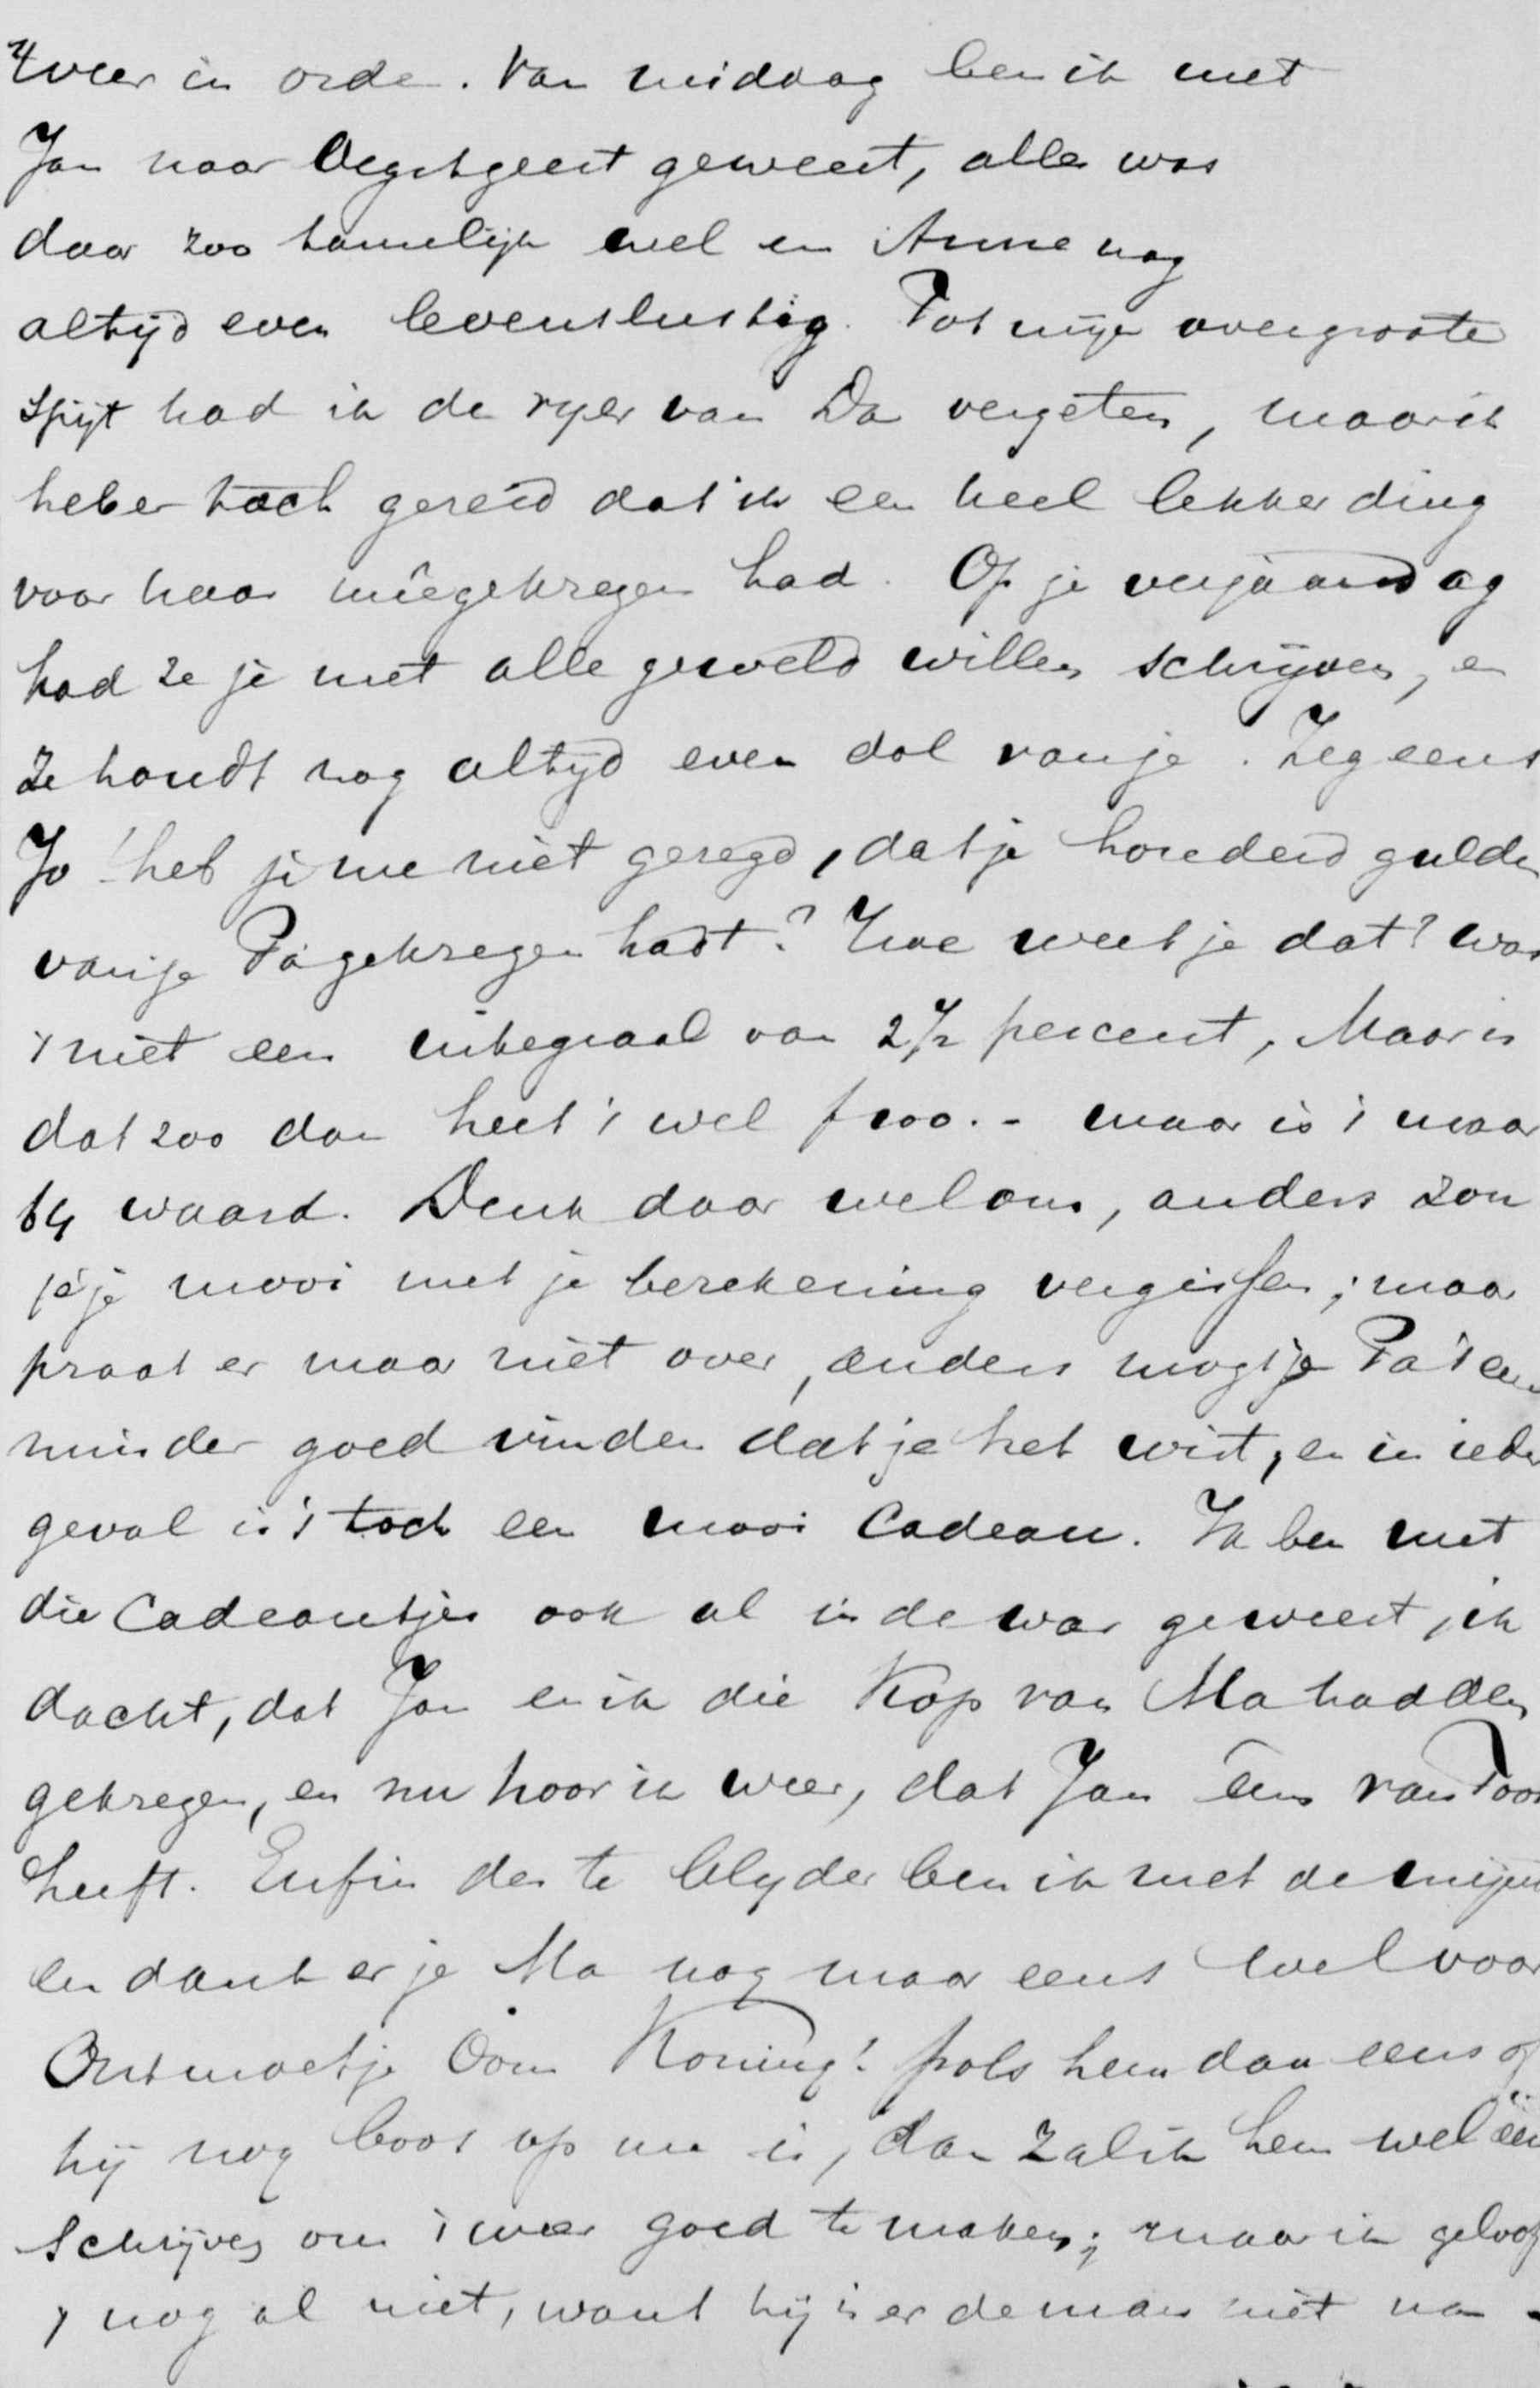 't weer in orde. Van middag ben ik met
Jan naar Oegstgeest geweest, alles was
daar zoo tamelijk wel en Anne nog
altijd even levenslustig. Tot mijn overgroote
spijt had ik de van Da vergeten, maar ik
heb er toch gezeid dat ik een heel lekker ding
voor haar meêgekregen had. Op je verjaardag
had ze je met alle geweld willen schrijven, en
ze houdt nog altijd even dol van je. Zeg eens
Jo! heb je me niet gezegd, dat je honderd gulden
van je Pa gekregen hadt? Hoe weet je dat? was
't niet een integraal van 2½ percent, Maar is
dat zoo dan heet 't wel f 100.- maar is 't maar
64 waard. Denk daar wel om, anders zou
je je mooi met je berekening vergissen; maar
praat er maar niet over, anders mogt je Pa 't eens
minder goed vinden dat je het wist, en in ieder
geval is 't toch een mooi Cadeau. Ik ben met
die Cadeautjes ook al in de war geweest, ik
dacht, dat Jan en ik die Kop van Ma hadden
gekregen, en nu hoor ik weer, dat Jan eens van Toos
heeft. Enfin des te blyder ben ik met de mijne
en dank er je Ma nog maar eens wel voor
Ontmoet je Oom Koning! pols hem dan eens of
hij nog boos op me is, dan zal ik hem wel één
schrijven om 't weer goed te maken; maar ik geloof
't nog al niet, want hij is er de man niet na.